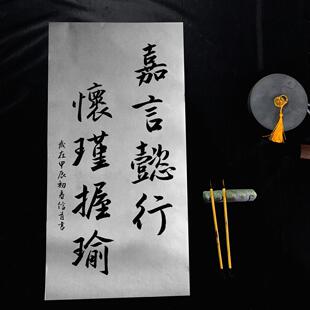 嘉言懿行
懷瑾握瑜
歲在甲辰初春